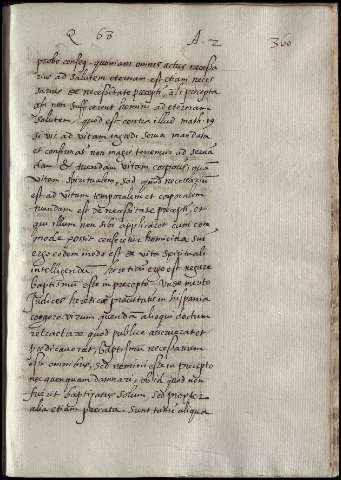 Q 68 A. 2 360
probo conseq. quoniam omnis actus necessa
rius ad salutem eternam est etiam neces
sarius de necessitate precepti, alias precepta
non sufficerent homini ad eternam
salutem quod est contra illud math. 19
si vis ad vitam ingredi serva mandata
et confirmat non magis tenemur ad servan
dam & tuendam vitam corporis quam
vitam spiritualem, sed quod necessarium
est ad vitam temporalem et corporalem
tuendam est de necessitate precepti, et
qui illum non sibi applicaret cum com
mode possit censeretur homicida sui
ergo eodem modo est de vita spirituali
intelligendum, hereticum ergo est negare
baptismum esse in precepto. unde merito
Judices heretice pravitatis in hispania
coegere virum quendam alioqui doctum
retractare quod publice asseruerat et
predicaverat, baptismum necessarium
esse omnibus, sed nemini esse in precepto
nec quenquam damnari, ob id quod non
fuerit baptizatus solum, sed propter
alia etiam peccata. sunt tamen aliqua